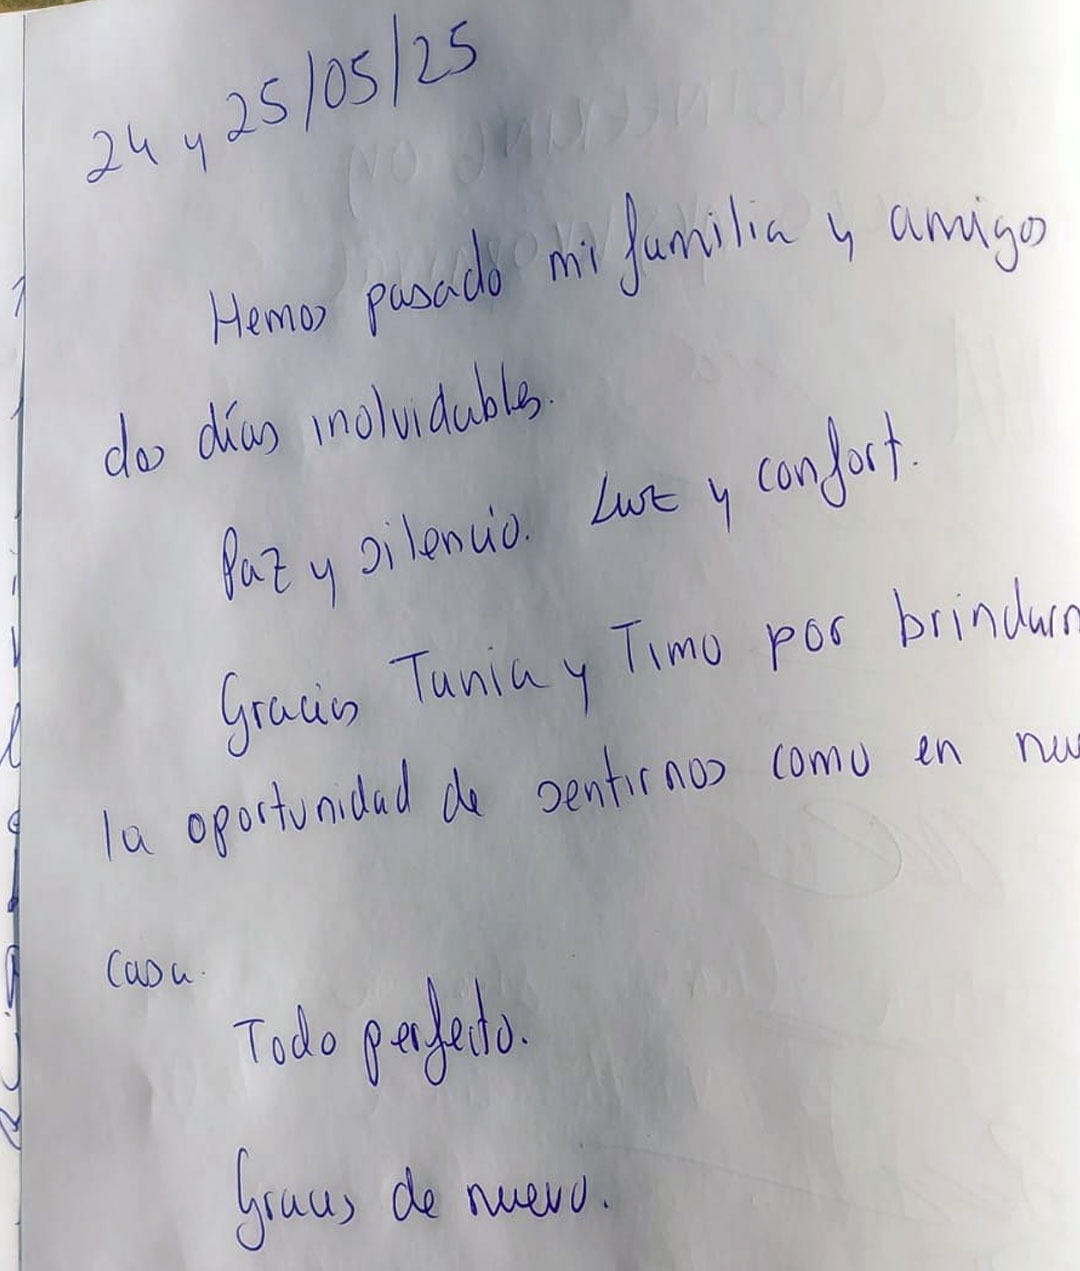 24 y 25/05/25
Hemos pasado mi familia y amigos
dos días inolvidables.
Paz y silencio. Luz y confort.
Gracias Tania y Timo por brindarn
la oportunidad de sentirnos como en nue
casa.
Todo perfecto.
Gracias de nuevo.